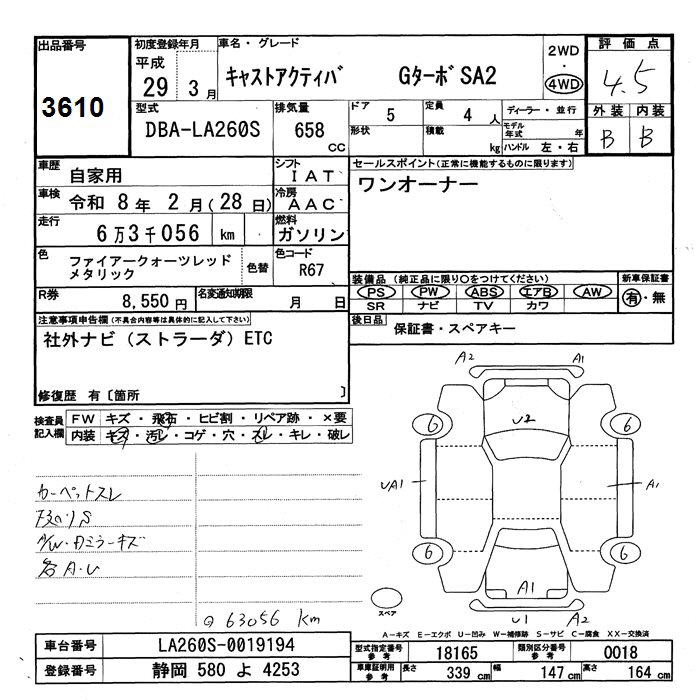 出品番号
3610
初度登録年月
平成
29年 3月
車名・グレード
キャストアクティバ GターボSA2
2WD
・
4WD
評価点
4.5
外装 内装
B B
型式
DBA-LA260S
排気量
658
CC
ドア
5
定員
4人
形状
積載
kg
ディーラー・並行
モデル年式 年
ハンドル 左・右
車歴
自家用
シフト
IAT
車検
令和 8年 2月(28日)
冷房
AAC
走行
6万3千056 km
燃料
ガソリン
色
ファイアークォーツレッド
メタリック
色替
色コード
R67
R券
8,550円
名変通知期限
月 日
セールスポイント(正常に機能するものに限ります)
ワンオーナー
装備品(純正品に限り○をつけてください)
新車保証書
PS PW ABS エアB AW
有・無
SR ナビ TV カワ
後日品
保証書・スペアキー
注意事項申告欄(不具合内容等は具体的に記入して下さい)
社外ナビ(ストラーダ)ETC
修復歴 有〔箇所 〕
検査員記入欄
FW キズ・飛石・ヒビ割・リペア跡・×要
内装 キズ・汚レ・コゲ・穴・スレ・キレ・破レ
カーペットスレ
A/W・Dミラーキズ
各A・U
63056 Km
A2 A1
6 6
U2
UA1 A1
6 6
A1
スペア
U1 A2
A-キズ E-エクボ U-凹み W-補修跡 S-サビ C-腐食 XX-交換済
車台番号
LA260S-0019194
登録番号
静岡 580 よ 4253
型式指定番号
参考
18165
類別区分番号
参考
0018
車庫証明用
参考
長さ
339 cm
幅
147 cm
高さ
164 cm